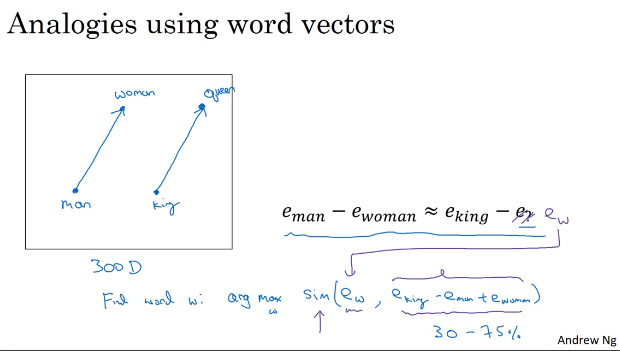 Analogies using word vectors
woman queen
man king
e_man − e_woman ≈ e_king − e_? e_w
300D
Find word w: arg max_w sim(e_w, e_king - e_man + e_woman)
30 - 75%
Andrew Ng